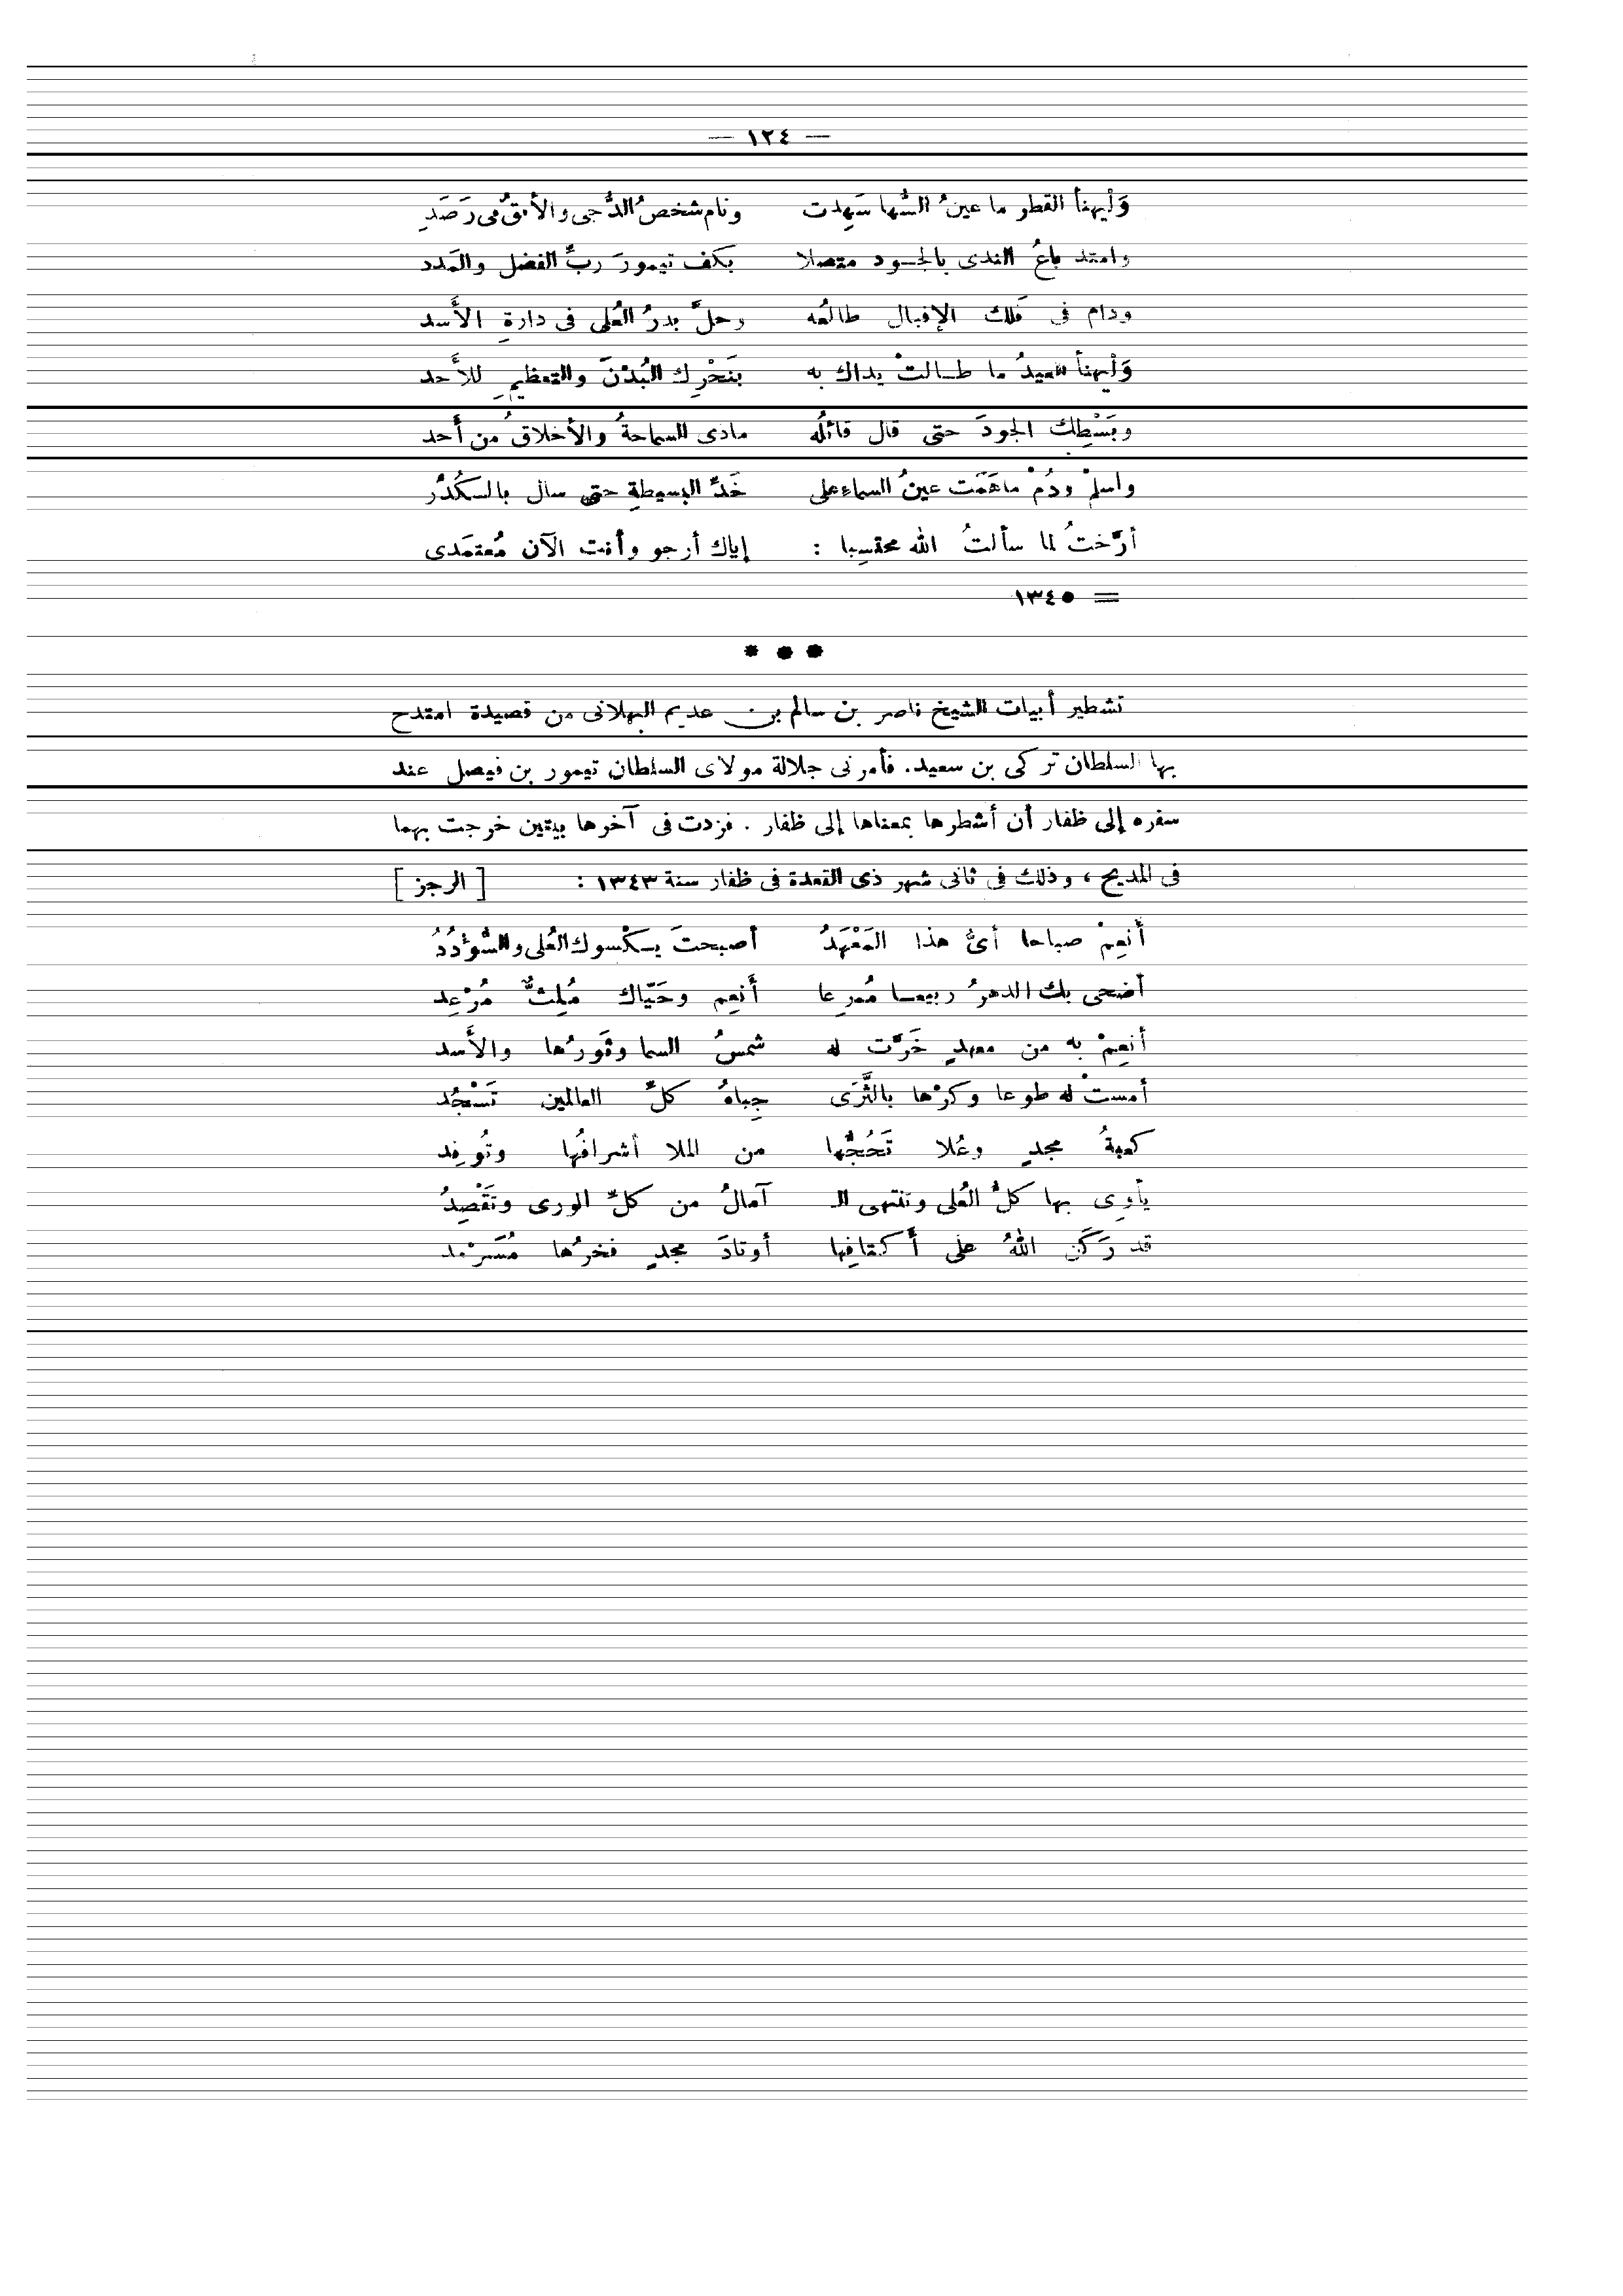 — ١٢٤ —
وَلْيهنأ القطر ما عينُ السُّها سَهِدت ونام شخصُ الدُّجى والأفقُ فى رَصَدِ
وامتد باعُ الندى بالجود متصلا بكف تيمورَ ربِّ الفضل والمَدد
ودام فى فَلك الإقبال طالعُه وحلَّ بدرُ العُلى فى دارةِ الأَسد
وَلْيهنأ العيدُ ما طالتْ يداك به بنَحْرِك البُدْنَ والتعظيمِ للأَحد
وبَسْطِك الجودَ حتى قال قائلُه مادى السماحةُ والأخلاقُ من أَحد
واسلمْ ودُمْ ماهَمَت عينُ السماء على خَدِّ البسيطةِ حتى سال بالسكُدُر
أرَّختُ لما سألتُ الله محتسِبا : إياك أرجو وأنت الآن مُعتمَدى
= ١٣٤٥
* * *
تشطير أبيات الشيخ ناصر بن سالم بن عديم البهلانى من قصيدة امتدح
بها السلطان تركى بن سعيد. فأمرنى جلالة مولاى السلطان تيمور بن فيصل عند
سفره إلى ظفار أن أشطرها بمعناها إلى ظفار . فزدت فى آخرها بيتين خرجت بهما
فى المديح ، وذلك فى ثانى شهر ذى القعدة فى ظفار سنة ١٣٤٣ : [ الرجز ]
أَنعِمْ صباحا أىُّ هذا المَعْهَدُ أصبحتَ يكسوك العُلى والسُّؤدُدُ
أضحى بك الدهرُ ربيعا مُمرِعا أَنعِم وحَيّاك مُلِثٌّ مُرْعِد
أَنعِمْ به من معهدٍ خَرَّت له شمسُ السما وثَورُها والأَسد
أمستْ له طوعا وكرْها بالثَّرَى جِباهُ كلِّ العالمين تَسْجُد
كعبةُ مجدٍ وعُلا تَحُجُّها من الملا أشرافُها وتُوفِد
يأوِى بها كلُّ العُلى وتنتهى الـ آمالُ من كلِّ الورى وتَقْصِدُ
قد رَكَن اللهُ على أَكتافِها أوتادَ مجدٍ فخرُها مُسَرْمد